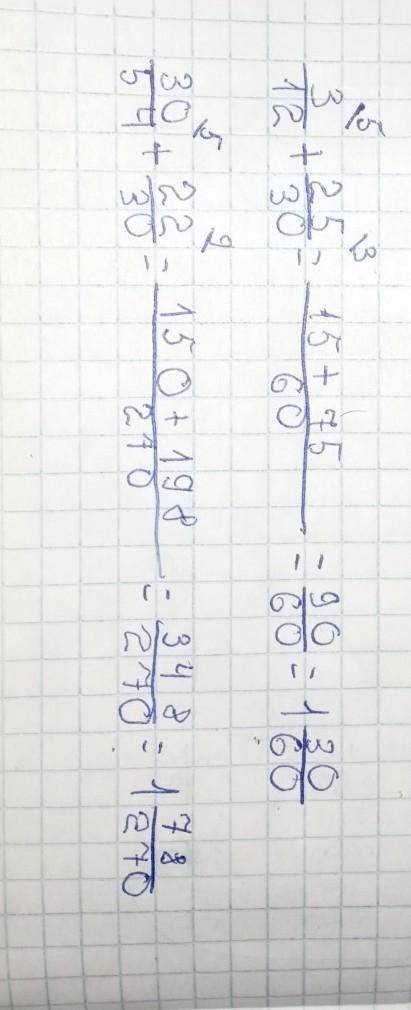 3/12 \5 + 25/30 \3 = 15+75/60 = 90/60 = 1 30/60
30/54 \5 + 22/30 \9 = 150+198/270 = 348/270 = 1 78/270